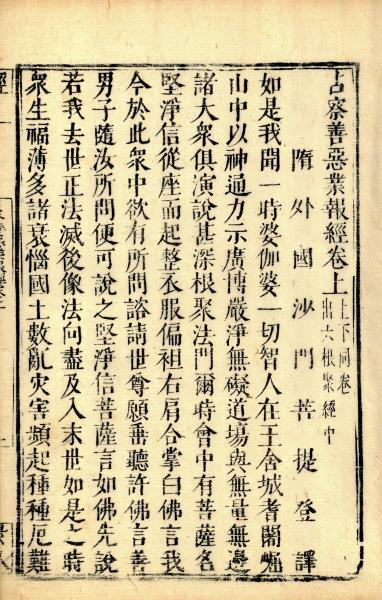 占察善惡業報經卷上
上下同卷
出六根聚經中
隋外國沙門菩提登譯
如是我聞一時婆伽婆一切智人在王舍城耆闍崛
山中以神通力示廣博嚴淨無礙道場與無量無邊
諸大衆俱演說甚深根聚法門爾時會中有菩薩名
堅淨信從座而起整衣服偏袒右肩合掌白佛言我
今於此衆中欲有所問諮請世尊願垂聽許佛言善
男子隨汝所問便可說之堅淨信菩薩言如佛先說
若我去世正法滅後像法向盡及入末世如是之時
衆生福薄多諸衰惱國土數亂灾害頻起種種厄難
經